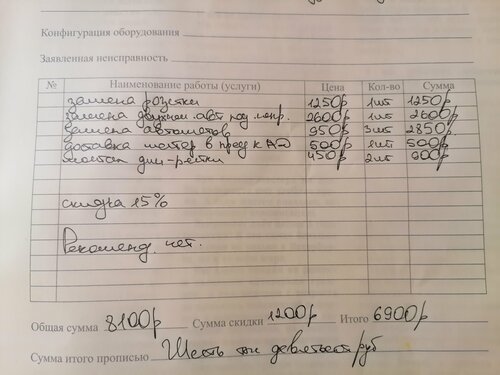 Конфигурация оборудования
Заявленная неисправность
№ Наименование работы (услуги) Цена Кол-во Сумма
замена розетки 1250р 1шт 1250р
замена двухпол. авт под напр. 2600р 1шт 2600р
замена автоматов 950р 3шт 2850р
доставка мастер в пред КАД 500р 1шт 500р
монтаж дин-рейки 450р 2шт 900р
скидка 15%
Рекоменд. нет.
Общая сумма 8100р Сумма скидки 1200р Итого 6900р
Сумма итого прописью Шесть тыс девятьсот руб